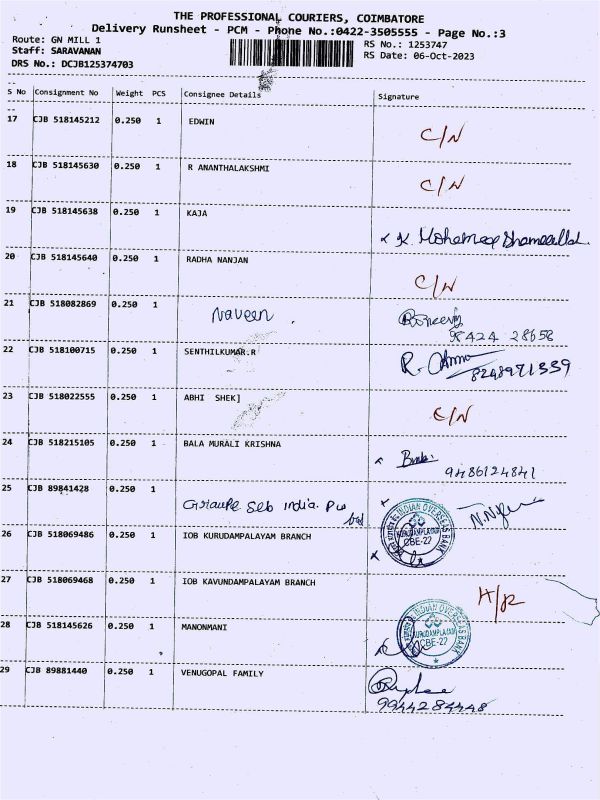 THE PROFESSIONAL COURIERS, COIMBATORE
Delivery Runsheet - PCM - Phone No.:0422-3505555 - Page No.:3
Route: GN MILL 1
RS No.: 1253747
Staff: SARAVANAN
RS Date: 06-Oct-2023
DRS No.: DCJB125374703
S No Consignment No Weight PCS Consignee Details Signature
17 CJB 518145212 0.250 1 EDWIN C/N
18 CJB 518145630 0.250 1 R ANANTHALAKSHMI C/N
19 CJB 518145638 0.250 1 KAJA K. Mohamed
20 CJB 518145640 0.250 1 RADHA NANJAN C/N
21 CJB 518082869 0.250 1 Naveen
98424 28658
22 CJB 518100715 0.250 1 SENTHILKUMAR.R R.
8248971339
23 CJB 518022555 0.250 1 ABHI SHEK] C/N
24 CJB 518215105 0.250 1 BALA MURALI KRISHNA
9486124841
25 CJB 89841428 0.250 1 Groupe Seb India. Pvt
ltd
26 CJB 518069486 0.250 1 IOB KURUDAMPALAYAM BRANCH
INDIAN OVERSEAS BANK
KURUDAMPLAYAM
CBE-22
27 CJB 518069468 0.250 1 IOB KAVUNDAMPALAYAM BRANCH H/R
INDIAN OVERSEAS BANK
KURUDAMPLAYAM
CBE-22
28 CJB 518145626 0.250 1 MANONMANI
29 CJB 89881440 0.250 1 VENUGOPAL FAMILY
9944284448